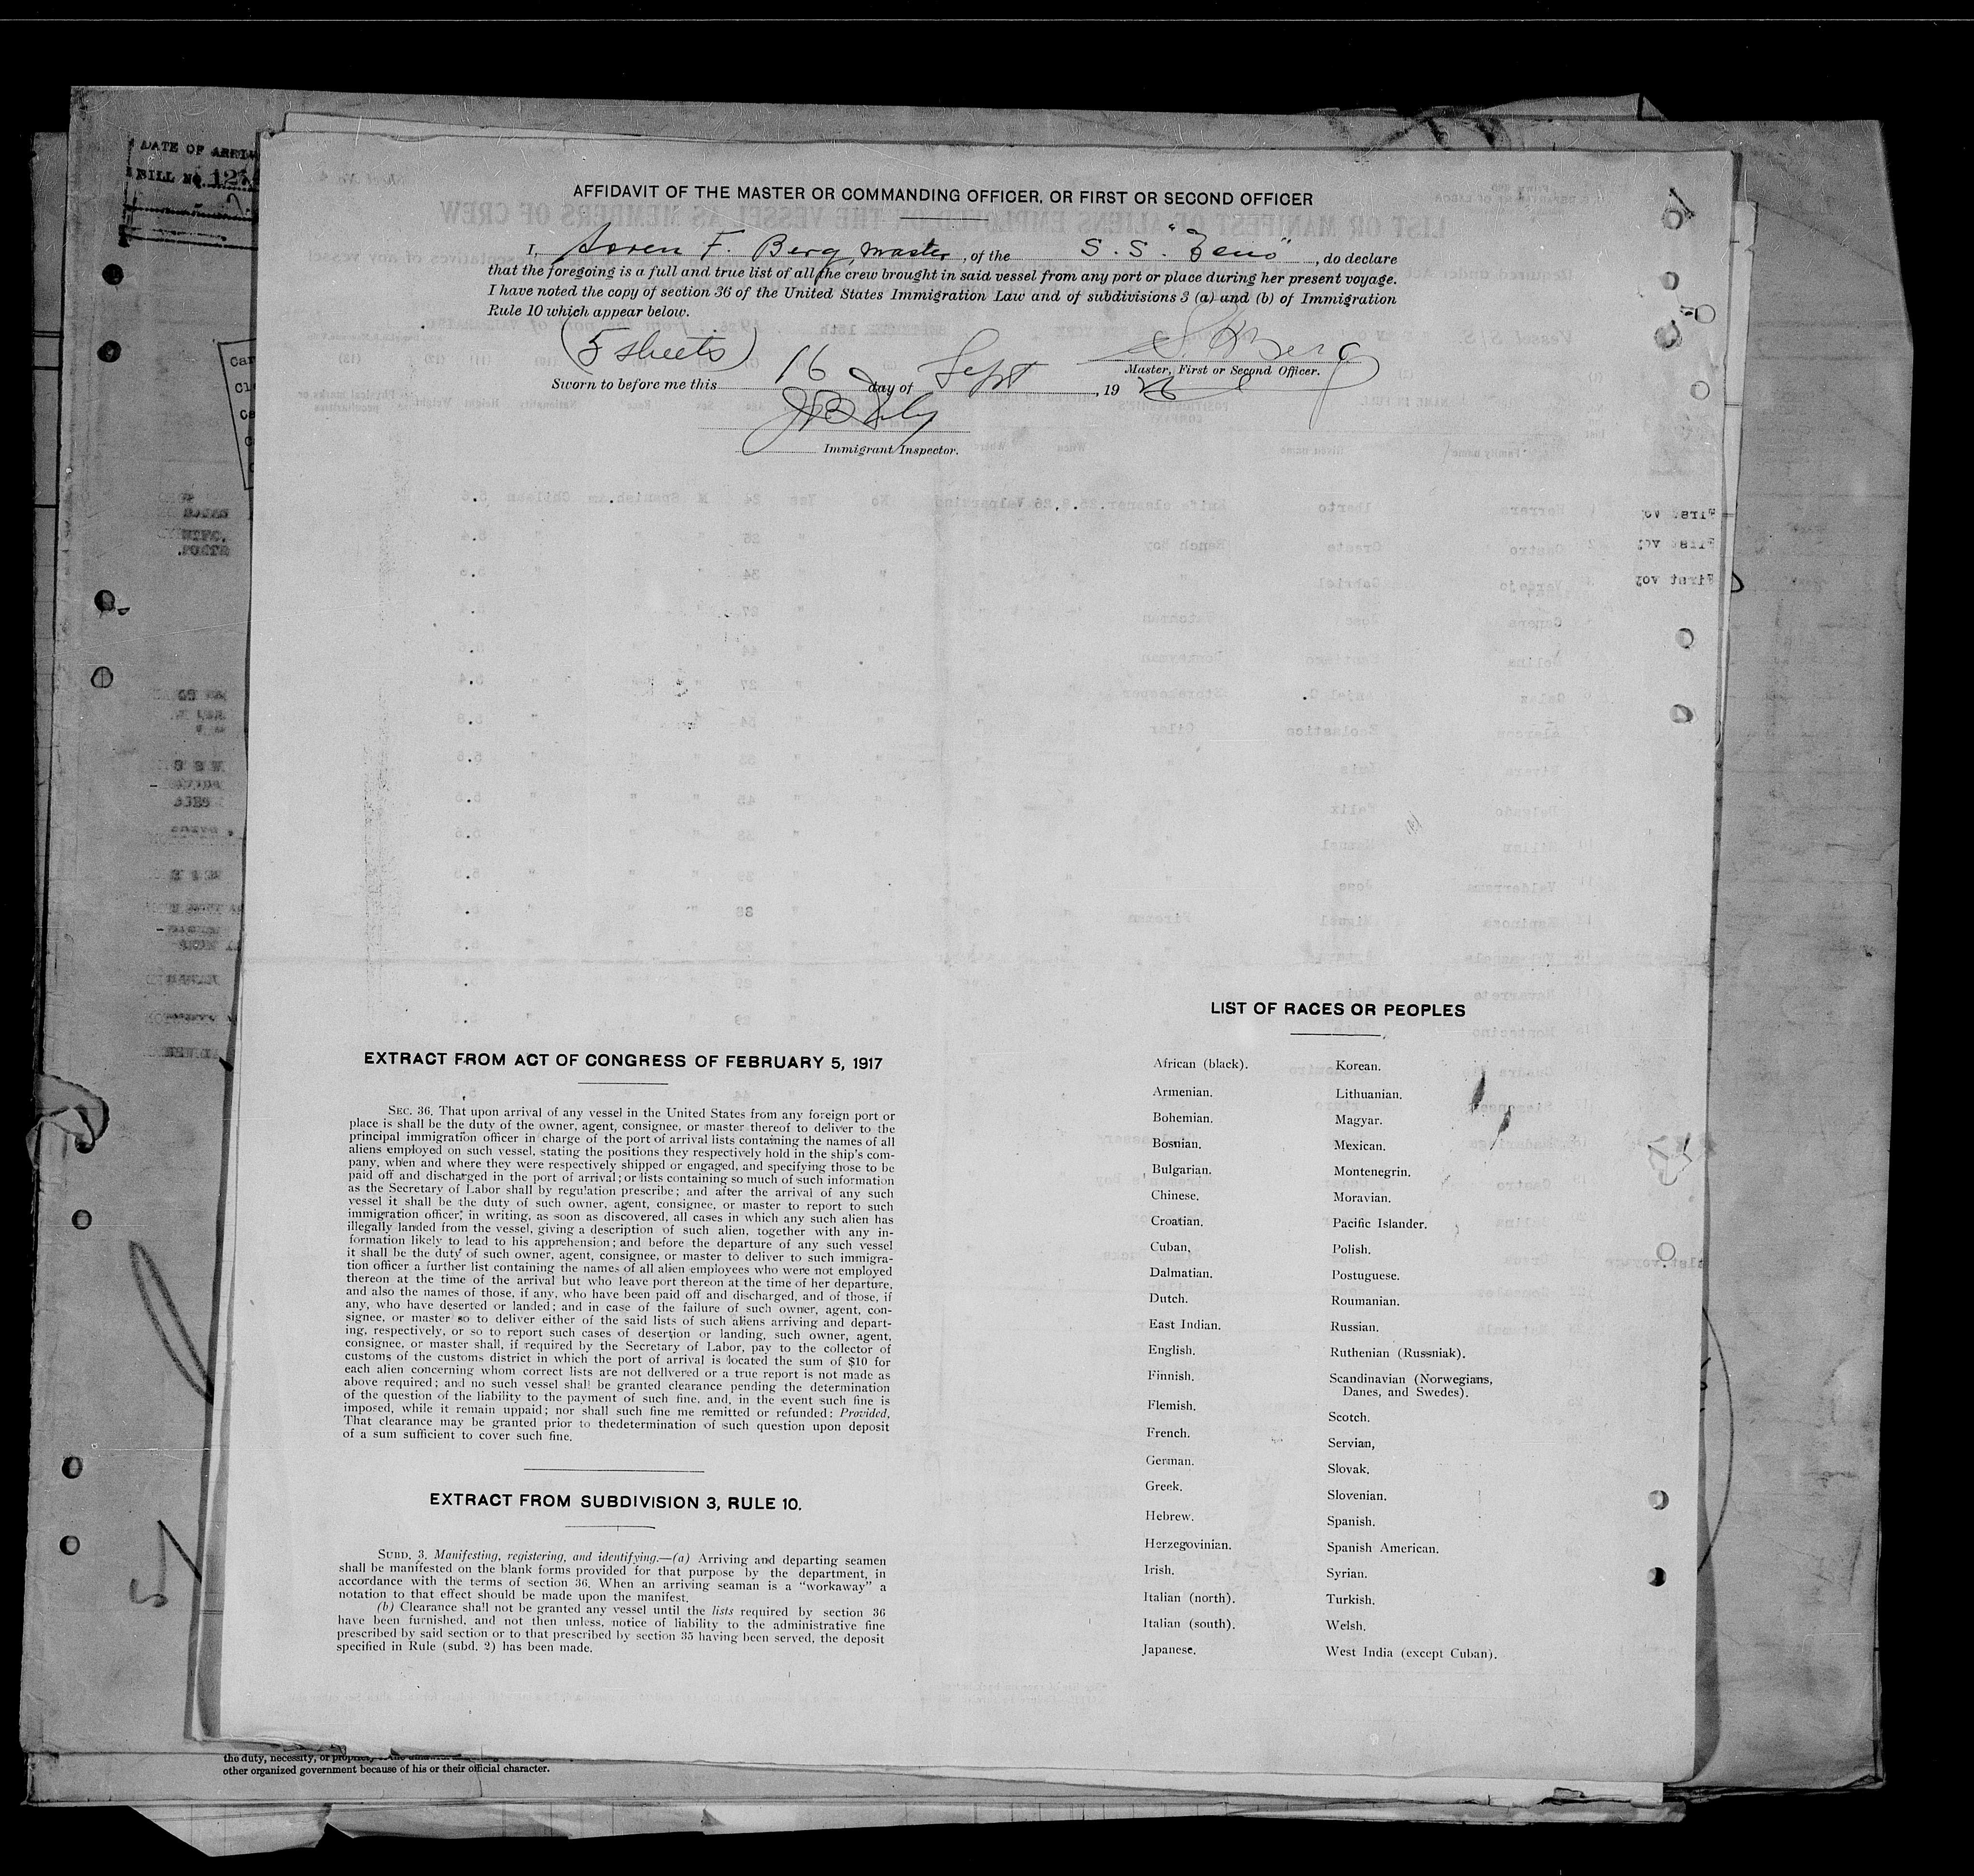 DATE OF
BILL No. 127
AFFIDAVIT OF THE MASTER OR COMMANDING OFFICER, OR FIRST OR SECOND OFFICER
I, Soren F. Berg, master, of the S. S. "Zeno", do declare
that the foregoing is a full and true list of all the crew brought in said vessel from any port or place during her present voyage.
I have noted the copy of section 36 of the United States Immigration Law and of subdivisions 3 (a) and (b) of Immigration
Rule 10 which appear below.
(5 sheets)
Berg
Master, First or Second Officer.
Sworn to before me this 16 day of Sept, 1926
Immigrant Inspector.
EXTRACT FROM ACT OF CONGRESS OF FEBRUARY 5, 1917
SEC. 36. That upon arrival of any vessel in the United States from any foreign port or
place is shall be the duty of the owner, agent, consignee, or master thereof to deliver to the
principal immigration officer in charge of the port of arrival lists containing the names of all
aliens employed on such vessel, stating the positions they respectively hold in the ship's com-
pany, when and where they were respectively shipped or engaged, and specifying those to be
paid off and discharged in the port of arrival; or lists containing so much of such information
as the Secretary of Labor shall by regulation prescribe; and after the arrival of any such
vessel it shall be the duty of such owner, agent, consignee, or master to report to such
immigration officer, in writing, as soon as discovered, all cases in which any such alien has
illegally landed from the vessel, giving a description of such alien, together with any in-
formation likely to lead to his apprehension; and before the departure of any such vessel
it shall be the duty of such owner, agent, consignee, or master to deliver to such immigra-
tion officer a further list containing the names of all alien employees who were not employed
thereon at the time of the arrival but who leave port thereon at the time of her departure,
and also the names of those, if any, who have been paid off and discharged, and of those, if
any, who have deserted or landed; and in case of the failure of such owner, agent, con-
signee, or master so to deliver either of the said lists of such aliens arriving and depart-
ing, respectively, or so to report such cases of desertion or landing, such owner, agent,
consignee, or master shall, if required by the Secretary of Labor, pay to the collector of
customs of the customs district in which the port of arrival is located the sum of $10 for
each alien concerning whom correct lists are not delivered or a true report is not made as
above required; and no such vessel shall be granted clearance pending the determination
of the question of the liability to the payment of such fine, and, in the event such fine is
imposed, while it remain uppaid; nor shall such fine me remitted or refunded: Provided,
That clearance may be granted prior to thedetermination of such question upon deposit
of a sum sufficient to cover such fine.
EXTRACT FROM SUBDIVISION 3, RULE 10.
SUBD. 3. Manifesting, registering, and identifying.—(a) Arriving and departing seamen
shall be manifested on the blank forms provided for that purpose by the department, in
accordance with the terms of section 36. When an arriving seaman is a "workaway" a
notation to that effect should be made upon the manifest.
(b) Clearance shall not be granted any vessel until the lists required by section 36
have been furnished, and not then unless, notice of liability to the administrative fine
prescribed by said section or to that prescribed by section 35 having been served, the deposit
specified in Rule (subd. 2) has been made.
LIST OF RACES OR PEOPLES
African (black).
Armenian.
Bohemian.
Bosnian.
Bulgarian.
Chinese.
Croatian.
Cuban,
Dalmatian.
Dutch.
East Indian.
English.
Finnish.
Flemish.
French.
German.
Greek.
Hebrew.
Herzegovinian.
Irish.
Italian (north).
Italian (south).
Japanese.
Korean.
Lithuanian.
Magyar.
Mexican.
Montenegrin.
Moravian.
Pacific Islander.
Polish.
Postuguese.
Roumanian.
Russian.
Ruthenian (Russniak).
Scandinavian (Norwegians,
Danes, and Swedes).
Scotch.
Servian,
Slovak.
Slovenian.
Spanish.
Spanish American.
Syrian.
Turkish.
Welsh.
West India (except Cuban).
the duty, necessity, or
other organized government because of his or their official character.